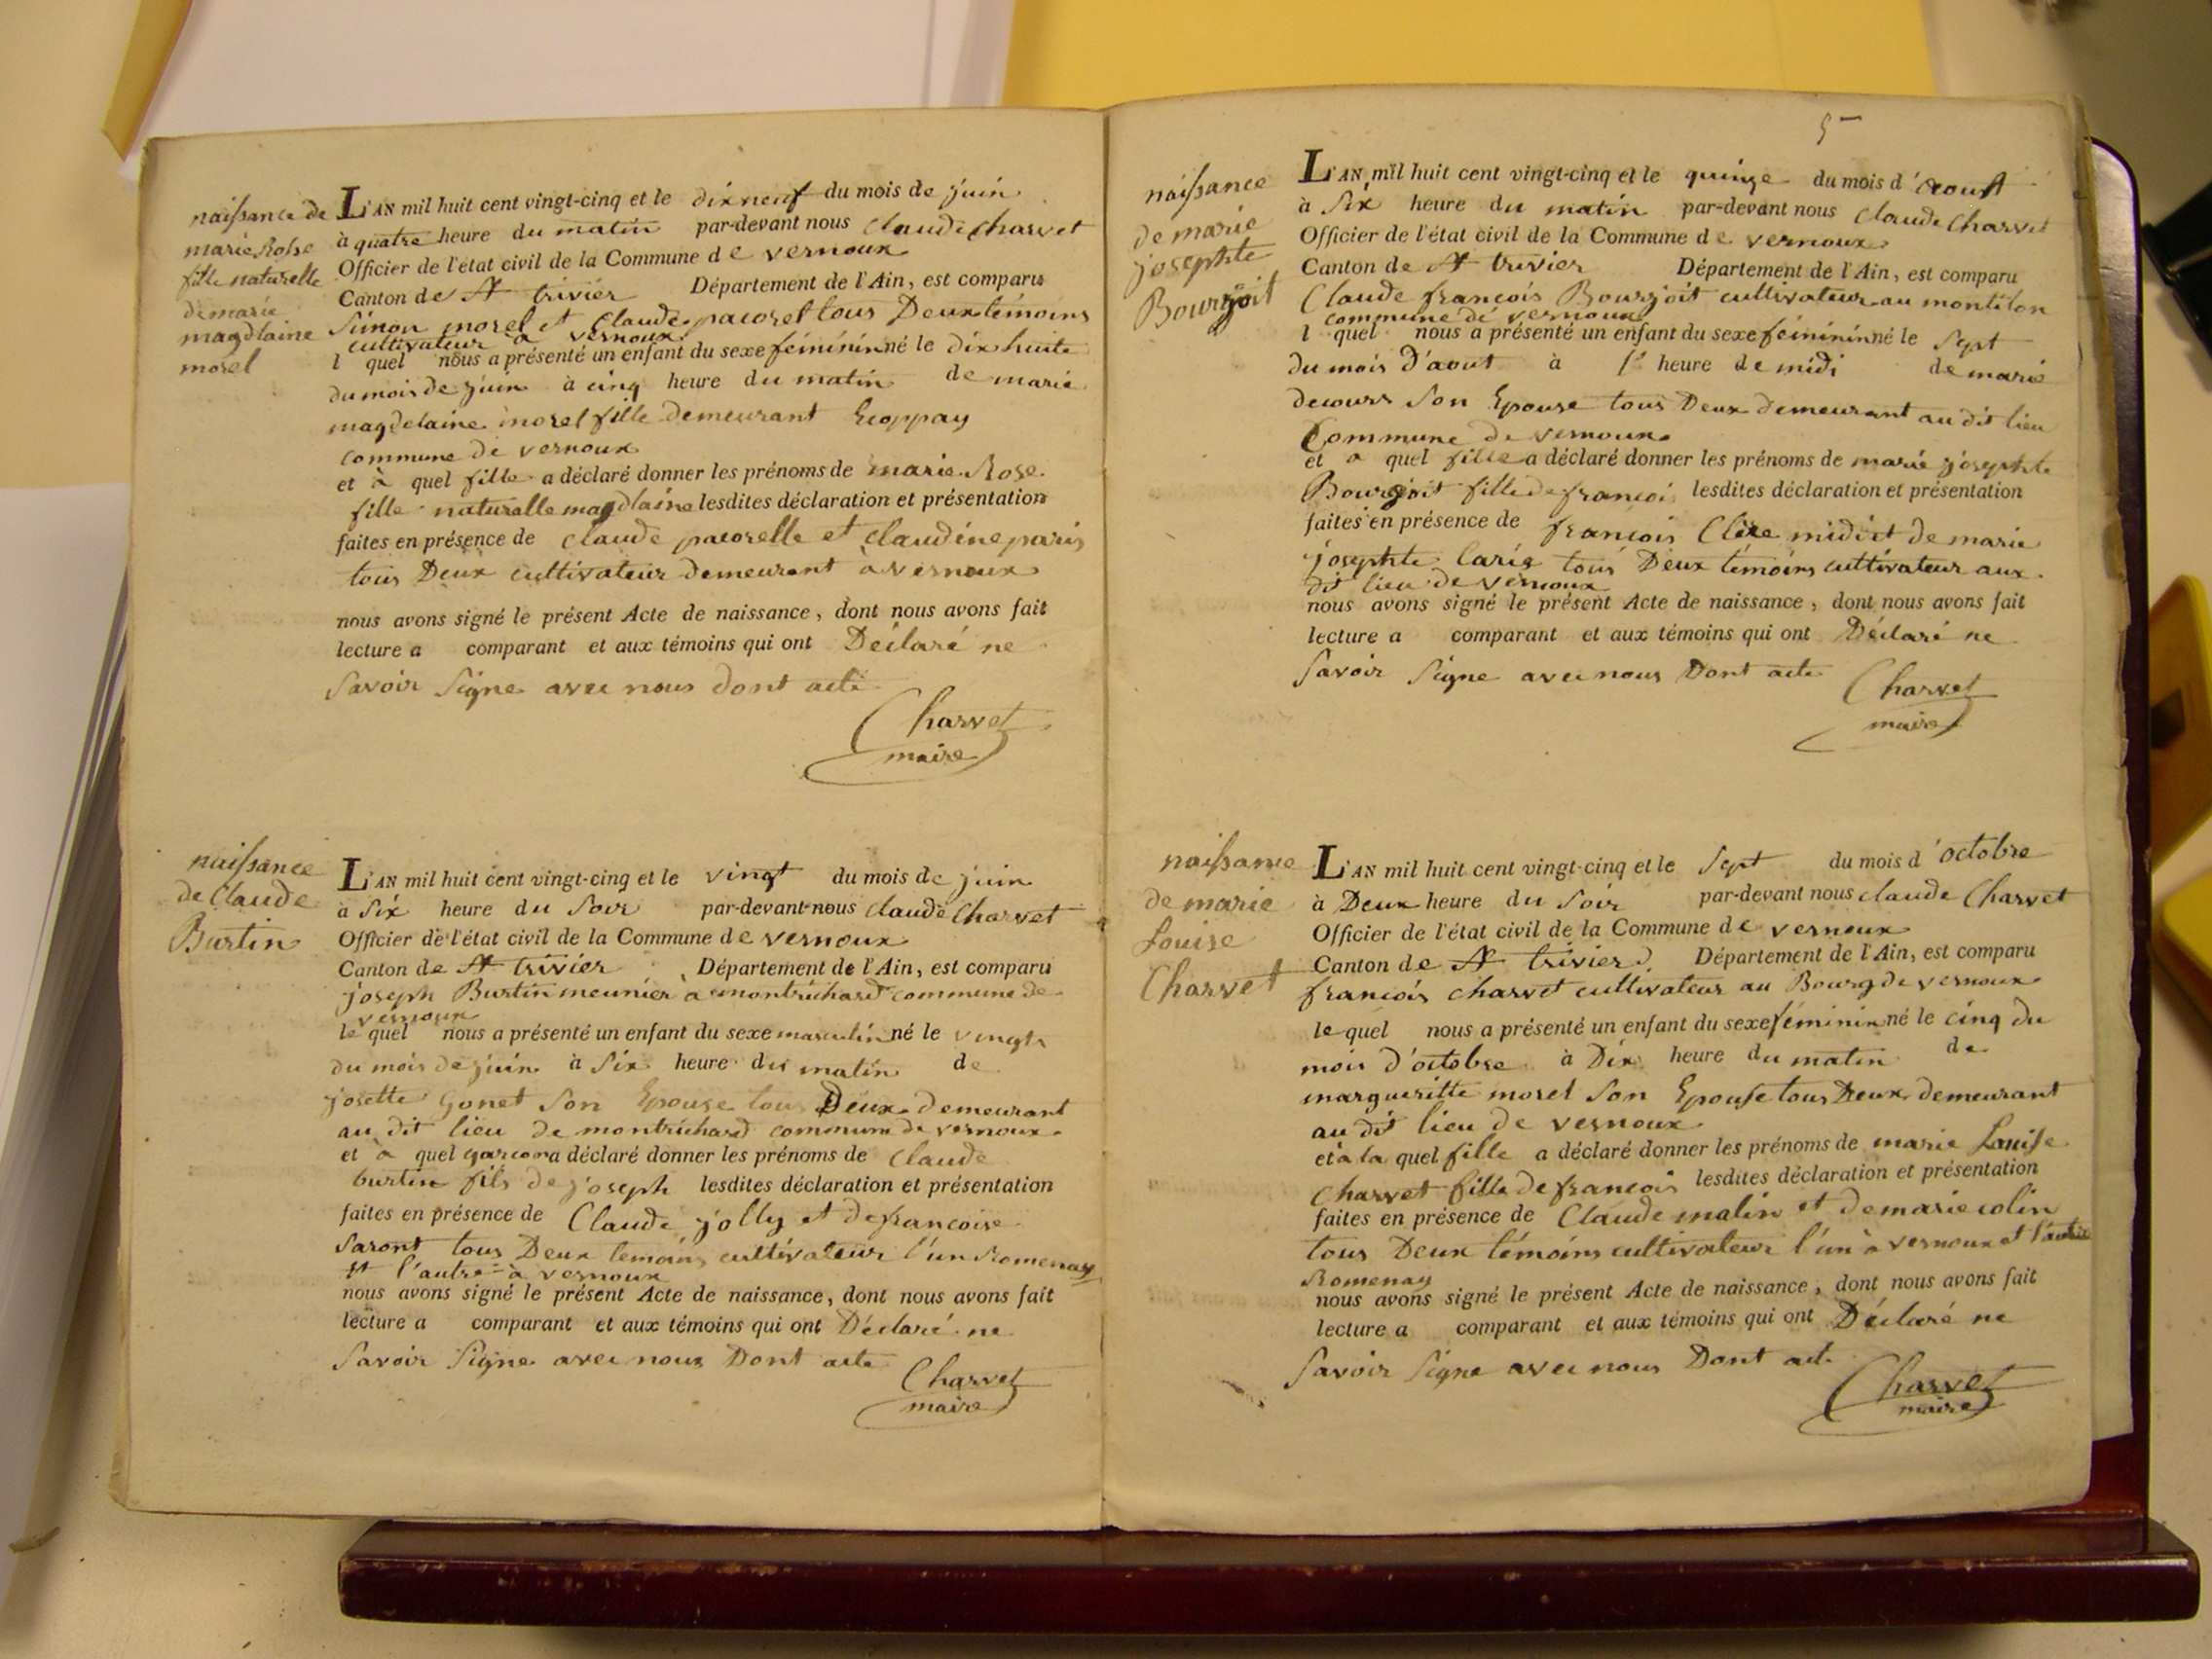 naissance de
marie Rosse
fille naturelle
de marie
magdlaine
morel
L'AN mil huit cent vingt-cinq et le dixneuf du mois de juin
à quatre heure du matin par-devant nous claude charvet
Officier de l'état civil de la Commune de vernoux
Canton de St trivier Département de l'Ain, est comparu
Simon morel et Claude pacoret tous Deux temoins
cultivateur a vernoux
l quel nous a présenté un enfant du sexe féminin né le dix huite
du mois de juin à cinq heure du matin de marie
magdelaine morel fille demeurant
commune de vernoux
et à quel fille a déclaré donner les prénoms de marie Rose
fille naturelle magdlaine lesdites déclaration et présentation
faites en présence de claude pacorelle et claudine paris
tous Deux cultivateur demeurant à vernoux
nous avons signé le présent Acte de naissance, dont nous avons fait
lecture a comparant et aux témoins qui ont Déclaré ne
Savoir Signe avec nous dont acte
Charvet
maire
naissance
de Claude
Burtin
L'AN mil huit cent vingt-cinq et le vingt du mois de juin
à Six heure du Soir par-devant nous claude Charvet
Officier de l'état civil de la Commune de vernoux
Canton de St trivier Département de l'Ain, est comparu
joseph Burtin meunier a montrichard commune de
vernoux
le quel nous a présenté un enfant du sexe masculin né le vingt
du mois de juin à Six heure du matin de
josette Gonet Son Epouse tous Deux demeurant
au dit lieu de montrichard commune de vernoux
et à quel garcon a déclaré donner les prénoms de Claude
burtin fils de joseph lesdites déclaration et présentation
faites en présence de Claude jolly et de francoise
Saront tous Deux temoins cultivateur l'un Romenay
et l'autre à vernoux
nous avons signé le présent Acte de naissance, dont nous avons fait
lecture a comparant et aux témoins qui ont Déclaré ne
Savoir Signe avec nous Dont acte
Charvet
maire
5
naissance
de marie
josephte
Bourgoit
L'AN mil huit cent vingt-cinq et le quinze du mois d'aoust
à Six heure du matin par-devant nous Claude Charvet
Officier de l'état civil de la Commune de vernoux
Canton de St trivier Département de l'Ain, est comparu
Claude francois Bourgoit cultivateur au montilon
commune de vernoux
l quel nous a présenté un enfant du sexe féminin né le Sept
du mois d'aout à heure de midi de marie
decours Son Epouse tous Deux demeurant au dit lieu
Commune de vernoux
et a quel fille a déclaré donner les prénoms de marie josephte
Bourgoit fille de francoi lesdites déclaration et présentation
faites en présence de francois Clere midi et de marie
josephte tous Deux témoins cultivateur aux
dit lieu de vernoux
nous avons signé le présent Acte de naissance, dont nous avons fait
lecture a comparant et aux témoins qui ont Déclaré ne
Savoir Signe avec nous Dont acte
Charvet
maire
naissance
de marie
Louise
Charvet
L'AN mil huit cent vingt-cinq et le Sept du mois d'octobre
à Deux heure du Soir par-devant nous claude Charvet
Officier de l'état civil de la Commune de vernoux
Canton de St trivier Département de l'Ain, est comparu
francois charvet cultivateur au Bourg de vernoux
le quel nous a présenté un enfant du sexe féminin né le cinq du
mois d'octobre à Dix heure du matin de
margueritte morel Son Epouse tous Deux demeurant
au dit lieu de vernoux
et à la quel fille a déclaré donner les prénoms de marie Louise
charvet fille de francois lesdites déclaration et présentation
faites en présence de Claude malin et de marie colin
tous Deux témoins cultivateur l'un à vernoux et l'autre
Romenay
nous avons signé le présent Acte de naissance, dont nous avons fait
lecture a comparant et aux témoins qui ont Déclaré ne
Savoir Signe avec nous Dont acte
Charvet
maire